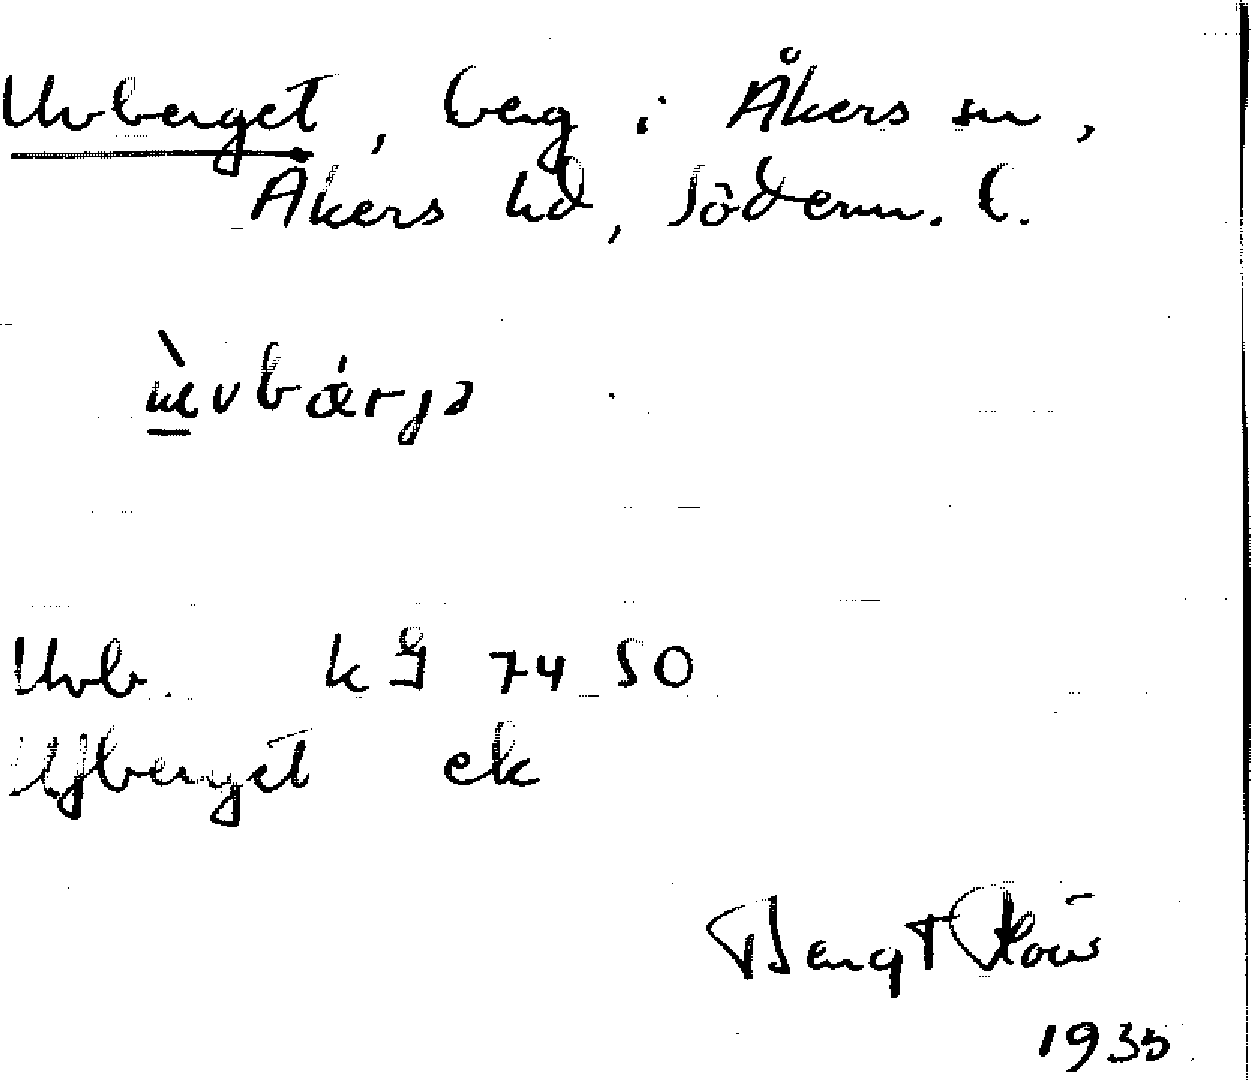 Uvberget, berg i Åkers sn,
Åkers hd, Söderm. l.
Uvb. kJ 74 50
Ufberget ek
Bengt
1935